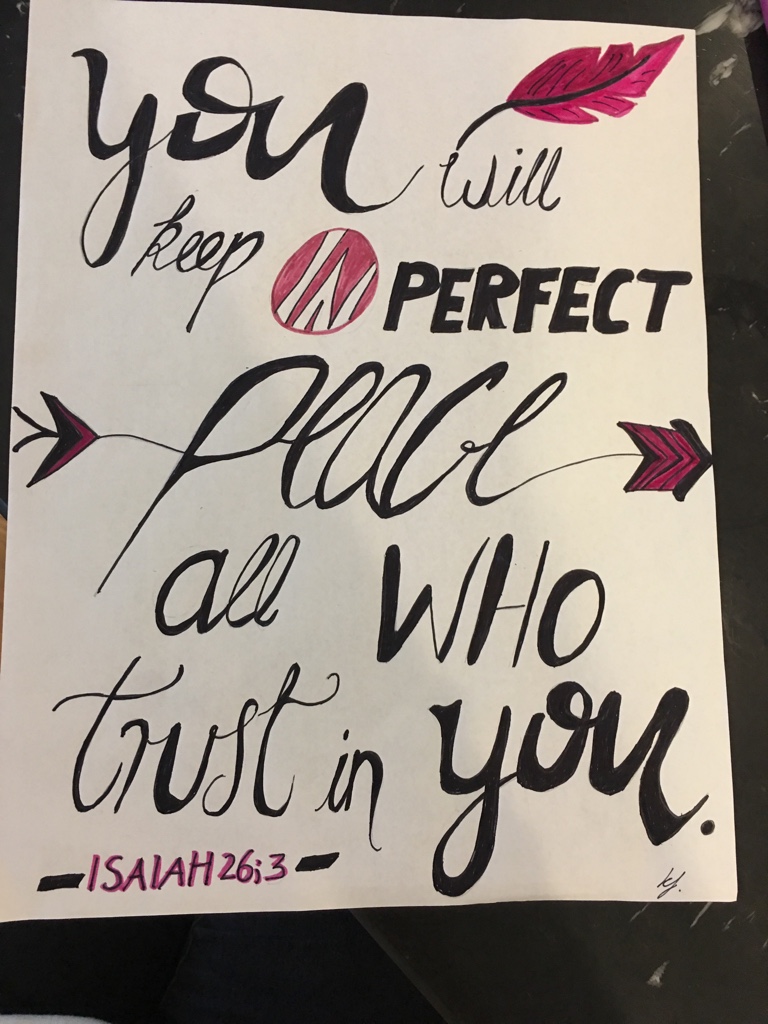 you will
keep IN PERFECT
peace
all WHO
trust in you.
- ISAIAH 26:3 -